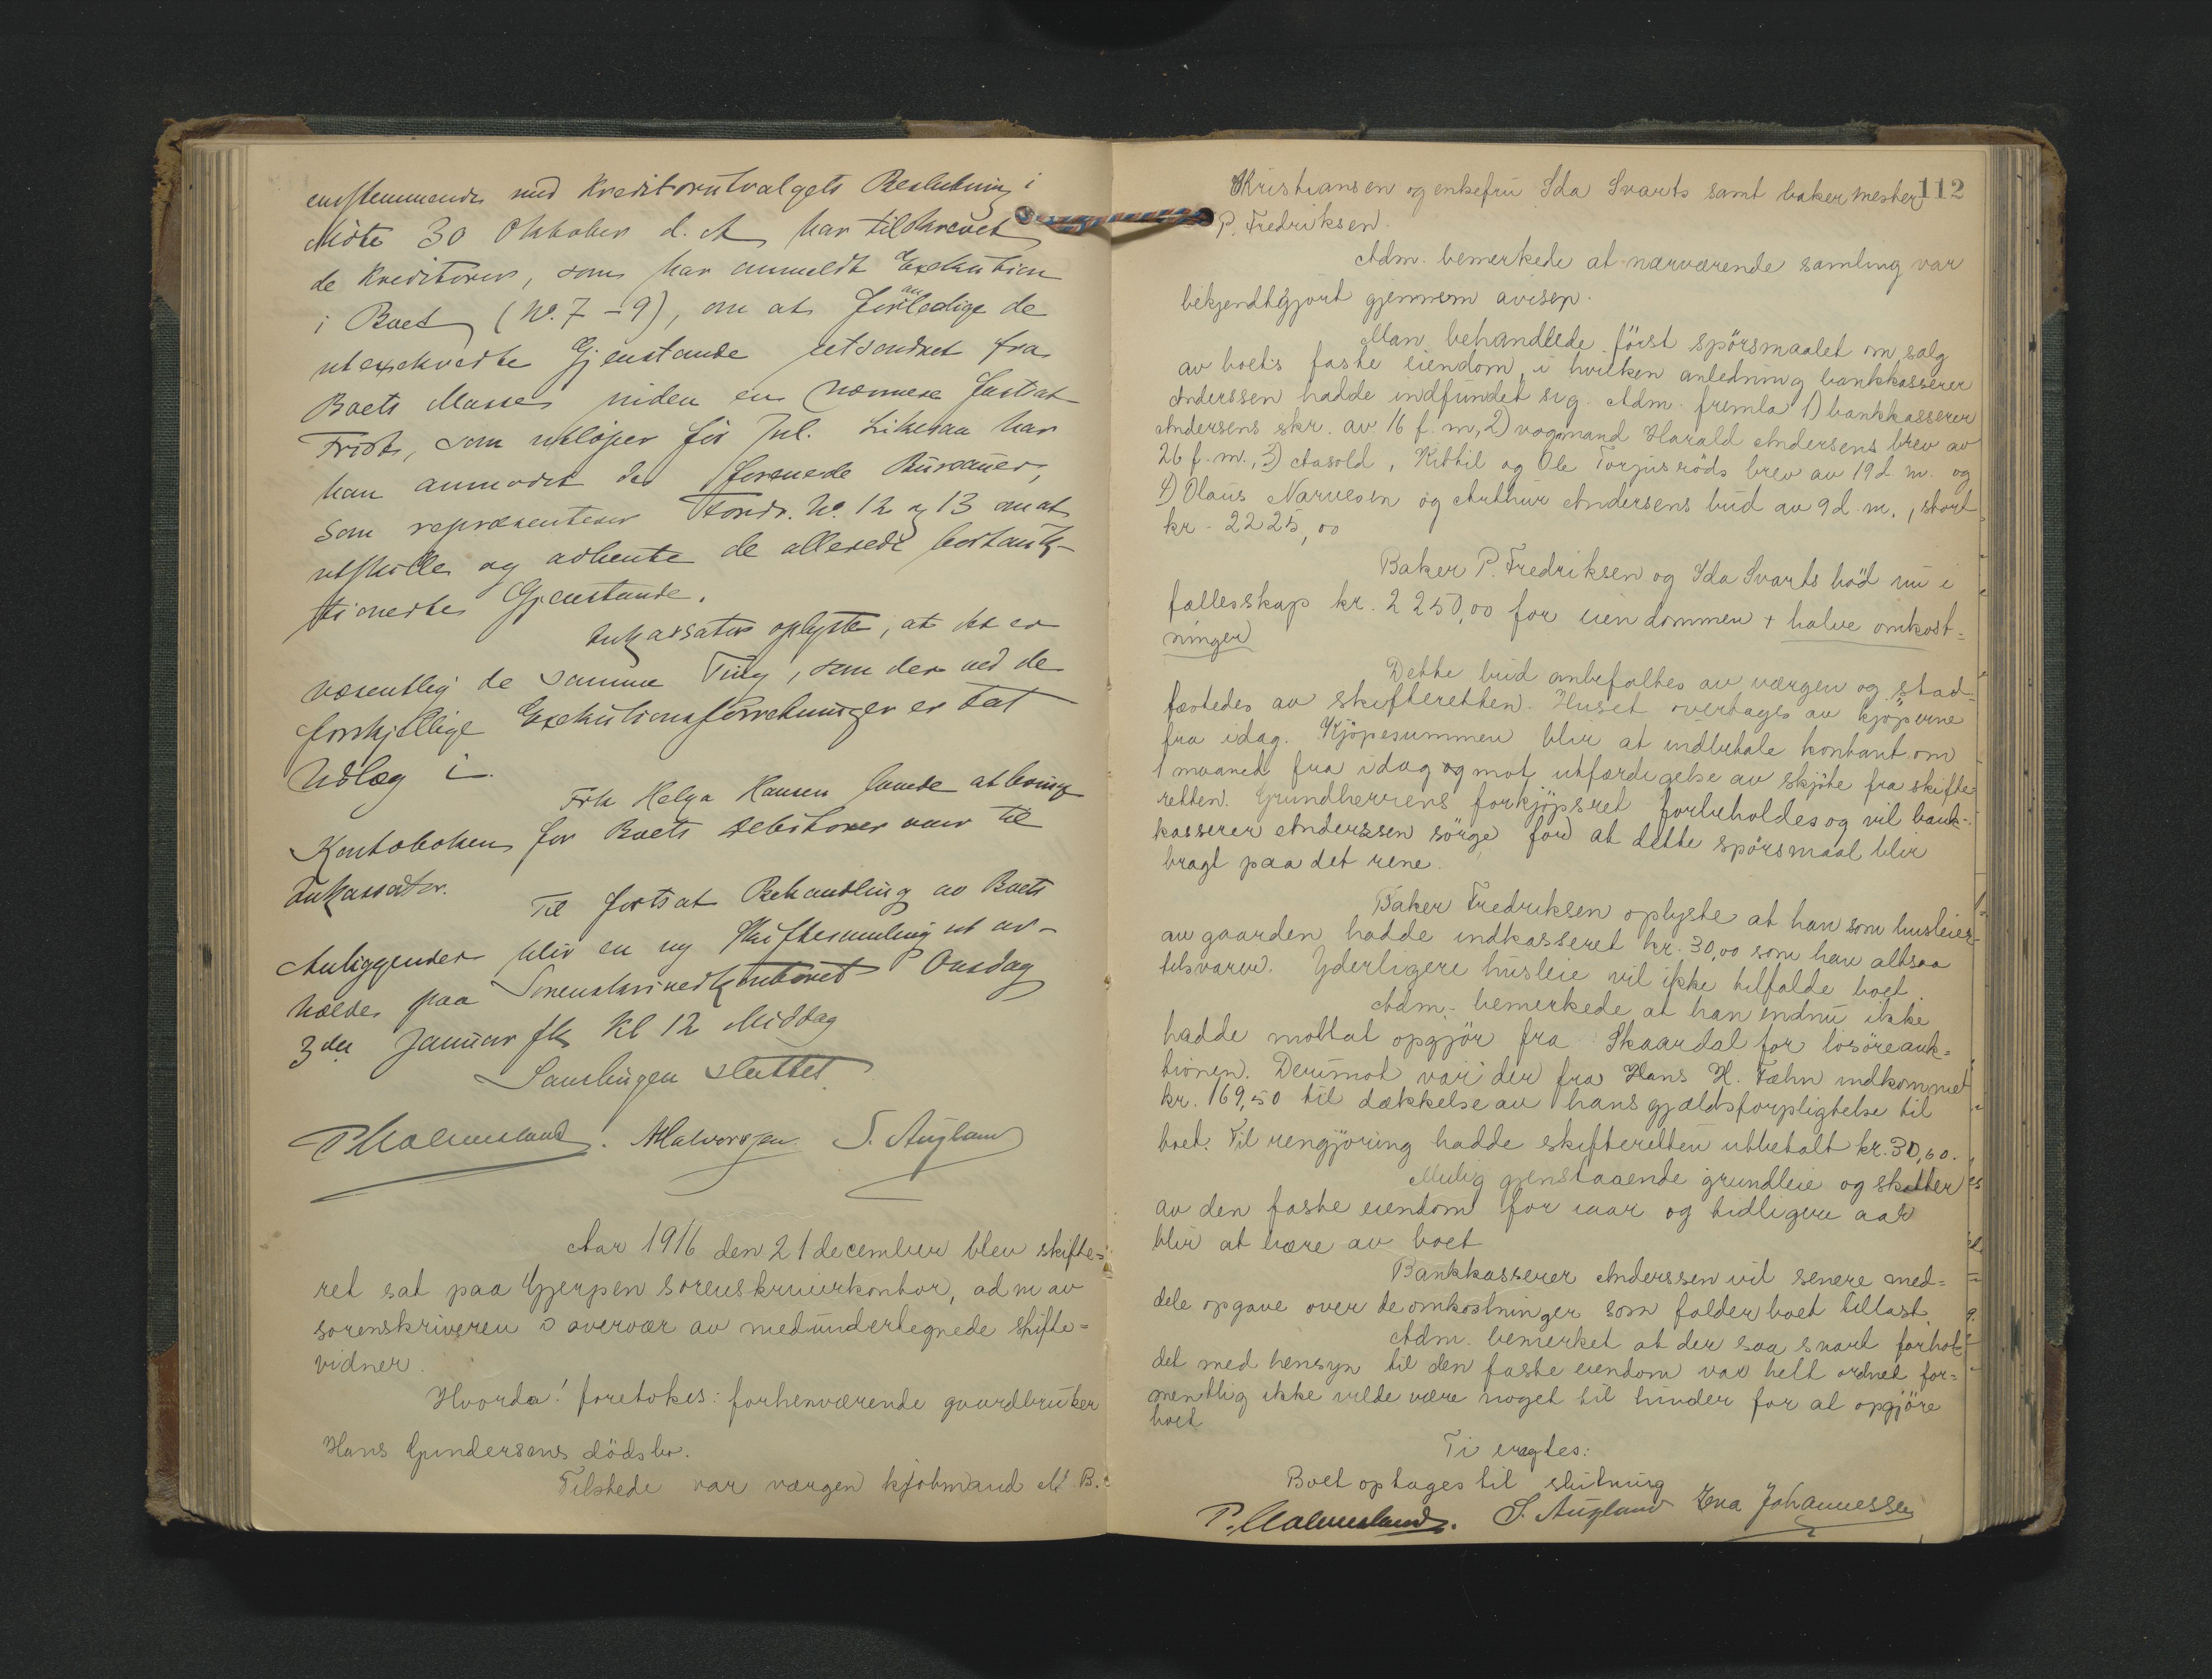 enstemmende med Kreditorutvalgets Beslutning i
Møte 30 Oktober d. A har tilskrevet
de Kreditorer, som har anmeldt Exekution
i Boet (No. 7 – 9), om at foranledige de
utexekverte Gjenstande utsondret fra
Boets Masse inden en nærmere fastsat
Frist, som utløper før Jul. Likesaa har
han anmodet de forenede Bureauer,
som repræsenterer Fordr. No. 12 og 13 om at
utskille og avhente de allerede bortauk-
tionerte Gjenstande.
Inkassator oplyste, at det er
væsentlig de samme Ting, som der ved de
forskjellige Exekutionsforretninger er tat
Udlæg i.
Frk Helga Hansen lovede at bringe
Kontoboken for Boets Debitorer over til
Inkassator.
Til fortsat Behandling av Boets
Anliggender blir en ny Skiftesamling at av-
holde paa Sorenskriverkontoret Onsdag
3die Januar fk Kl 12 Middag
Samlingen sluttet.
P. Holmesland. Halvorsen. S. Augland
Aar 1916 den 21 december blev skifte=
ret sat paa Gjerpen sorenskriverkontor, adm av
sorenskriveren i overvær av medundertegnede skifte=
vidner.
Hvorda! foretokes: forhenværende gaardbruker
Hans Gundersens dödsbo.
Tilstede var værgen kjöbmand M. B.
112
Kristiansen og enkefru Ida Svarts samt bakermester
P. Fredriksen.
Adm. bemerkede at nærværende samling var
bekjendtgjort gjennem avisen.
Man behandlede först spörsmaalet om salg
av boets faste eiendom, i hvilken anledning bankkasserer
Anderssen hadde indfundet sig. Adm. fremla 1) bankkasserer
Andersens skr. av 16 f. m, 2) vognmand Harald Andersens brev av
26 f. m., 3) Aasold, Kittil og Ole Torjusröds brev av 19 d. m. og
4) Olaus Narvesen og Arthur Andersens bud av 9 d. m., stort
kr. 2225,00
Baker P. Fredriksen og Ida Svarts böd nu i
fællesskap kr. 2250,00 for eiendommen + halve omkost=
ninger
Dette bud anbefaltes av værgen og stad=
fæstedes av skifteretten. Huset overtages av kjöperne
fra idag. Kjöpesummen blir at indbetale kontant om
1 maaned fra idag og mot utfærdigelse av skjöte fra skifte
retten. Grundherrens forkjöpsret forbeholdes og vil bank-
kasserer Anderssen sörge for at dette spörsmaal blir
bragt paa det rene.
Baker Fredriksen oplyste at han som husleier
av gaarden hadde indkasseret kr. 30,00 som han altsaa
tilsvarer. Yderligere husleie vil ikke tilfalde boet.
Adm. bemerkede at han endnu ikke
hadde mottat opgjör fra Skaardal for lösöreauk=
tionen. Derimot var der fra Hans H. Fæhn indkommet
kr. 169,50 til dækkelse av hans gjældsforpligtelse til
boet. Til rengjöring hadde skifteretten utbetalt kr. 30,60.
Mulig gjenstaaende grundleie og skatter
av den faste eiendom for iaar og tidligere aar
blir at bære av boet
Bankkasserer Anderssen vil senere med=
dele opgave over de omkostninger som falder boet tillast.
Adm. bemerket at der saa snart forhol-
det med hensyn til den faste eiendom var helt ordnet for=
mentlig ikke vilde være noget til hinder for at opgjöre
boet
Ti eragtes:
Boet optages til slutning
P. Holmesland. S. Augland Ena Johannessen